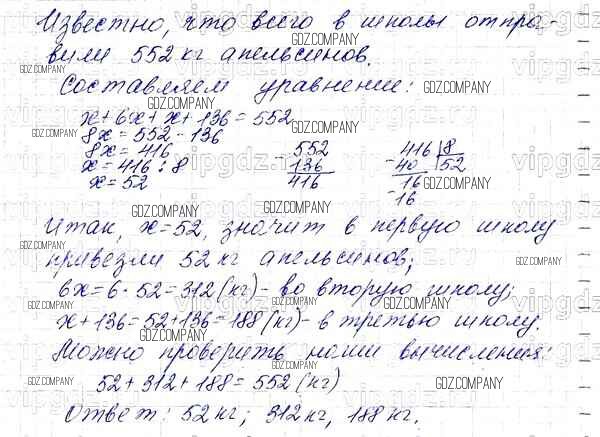 Известно, что всего в школы отпра-
вили 552 кг апельсинов.
Составляем уравнение:
x + 6x + x + 136 = 552
8x = 552 - 136
8x = 416
x = 416 : 8
x = 52
- 552
136
416
416 | 8
- 40 | 52
16
- 16
Итак, x = 52, значит в первую школу
привезли 52 кг апельсинов;
6x = 6 · 52 = 312 (кг) - во вторую школу;
x + 136 = 52 + 136 = 188 (кг) - в третью школу.
Можно проверить наши вычисления:
52 + 312 + 188 = 552 (кг)
Ответ: 52 кг; 312 кг, 188 кг.
GDZ.COMPANY
vipgdz.ru